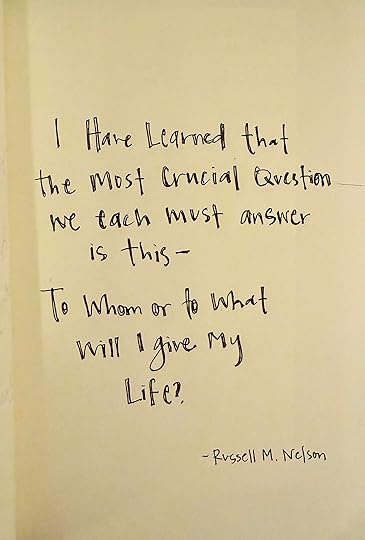 I Have Learned that
the Most Crucial Question
we each must answer
is this –
To Whom or to What
Will I give My
Life?
- Russell M. Nelson